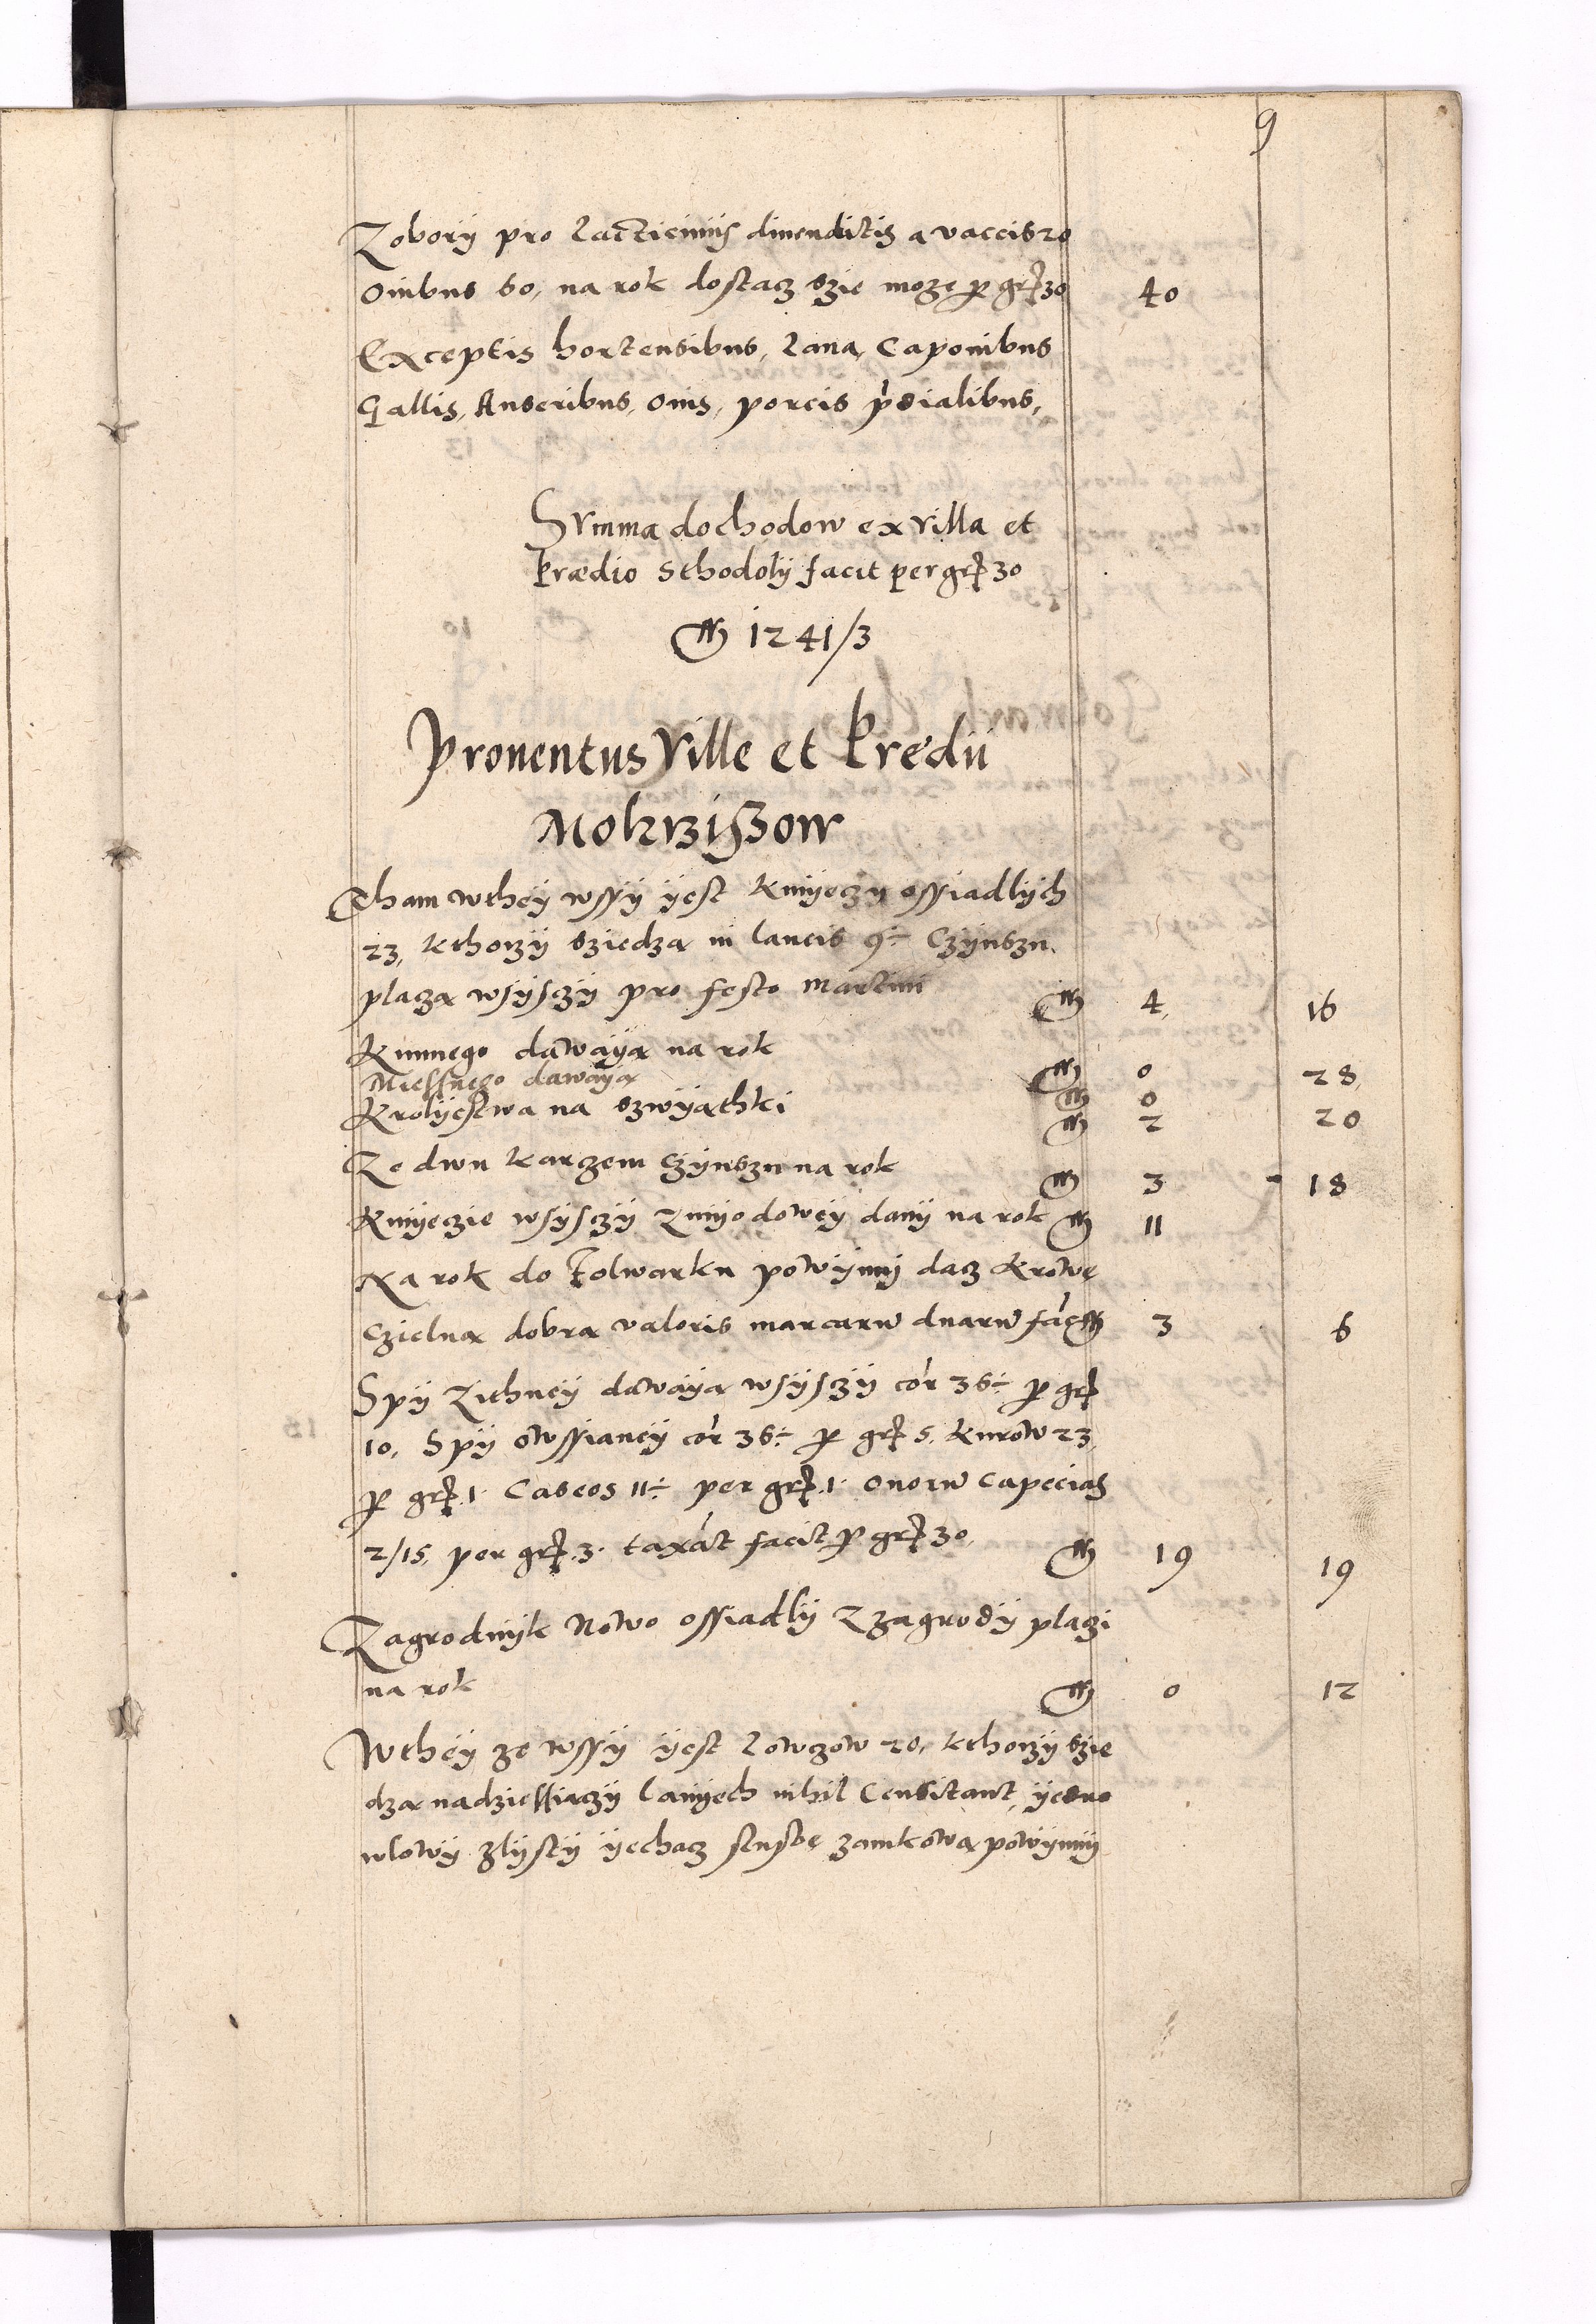 9
Zobory pro lacticiniis divenditis a vaccis 20
Ouibus 60, na rok dostacz szie moze p gr 30 40
Exceptis hortensibus, lana, Caponibus
Gallis, Anseribus, Ouis, porcis pdialibus,
Summa dochodow ex villa et
Prædio Sthodoly facit per gr 30
M 1241/3
Prouentus Ville et Predii
Mokrzißow
Tham wthey wssy yest kmyeczy ossiadlych
23, kthorzy sziedzą in laneis 9÷ Czynszu
placzą wsysczy pro festo Martini M 4 16
Kunnego dawayą na rok M 0 28
Miessnego dawaya M 0
Krolyestwa na szwyathki M 2 20
Ze dwu karczem czynszu na rok M 3 18
Kmyeczie wsysczy z myodowey dany na rok M 11
Na rok do folwarku powynny dacz krowę
Czielną dobrą valoris marcarū duarū fac M 3 6
Spy zithney dawayą wsysczy cor 36÷ p gr
10, Spy owssianey cor 36÷ p gr 5, Kurow 23,
p gr 1 Caseos 11÷ per gr 1 Ouorū Capecias
2/15, per gr 3. taxāt facit p gr 30 M 19 19
Zagrodnyk Nowo ossiadly Z zagrody placzi
na rok M 0 12
Wthey ze wssy yest lowczow 20, kthorzy szie
dzą na dziessiączy lanyech nihil Censitant, yedno
wlowy zlysty yechacz sluszbę zamkową powynny